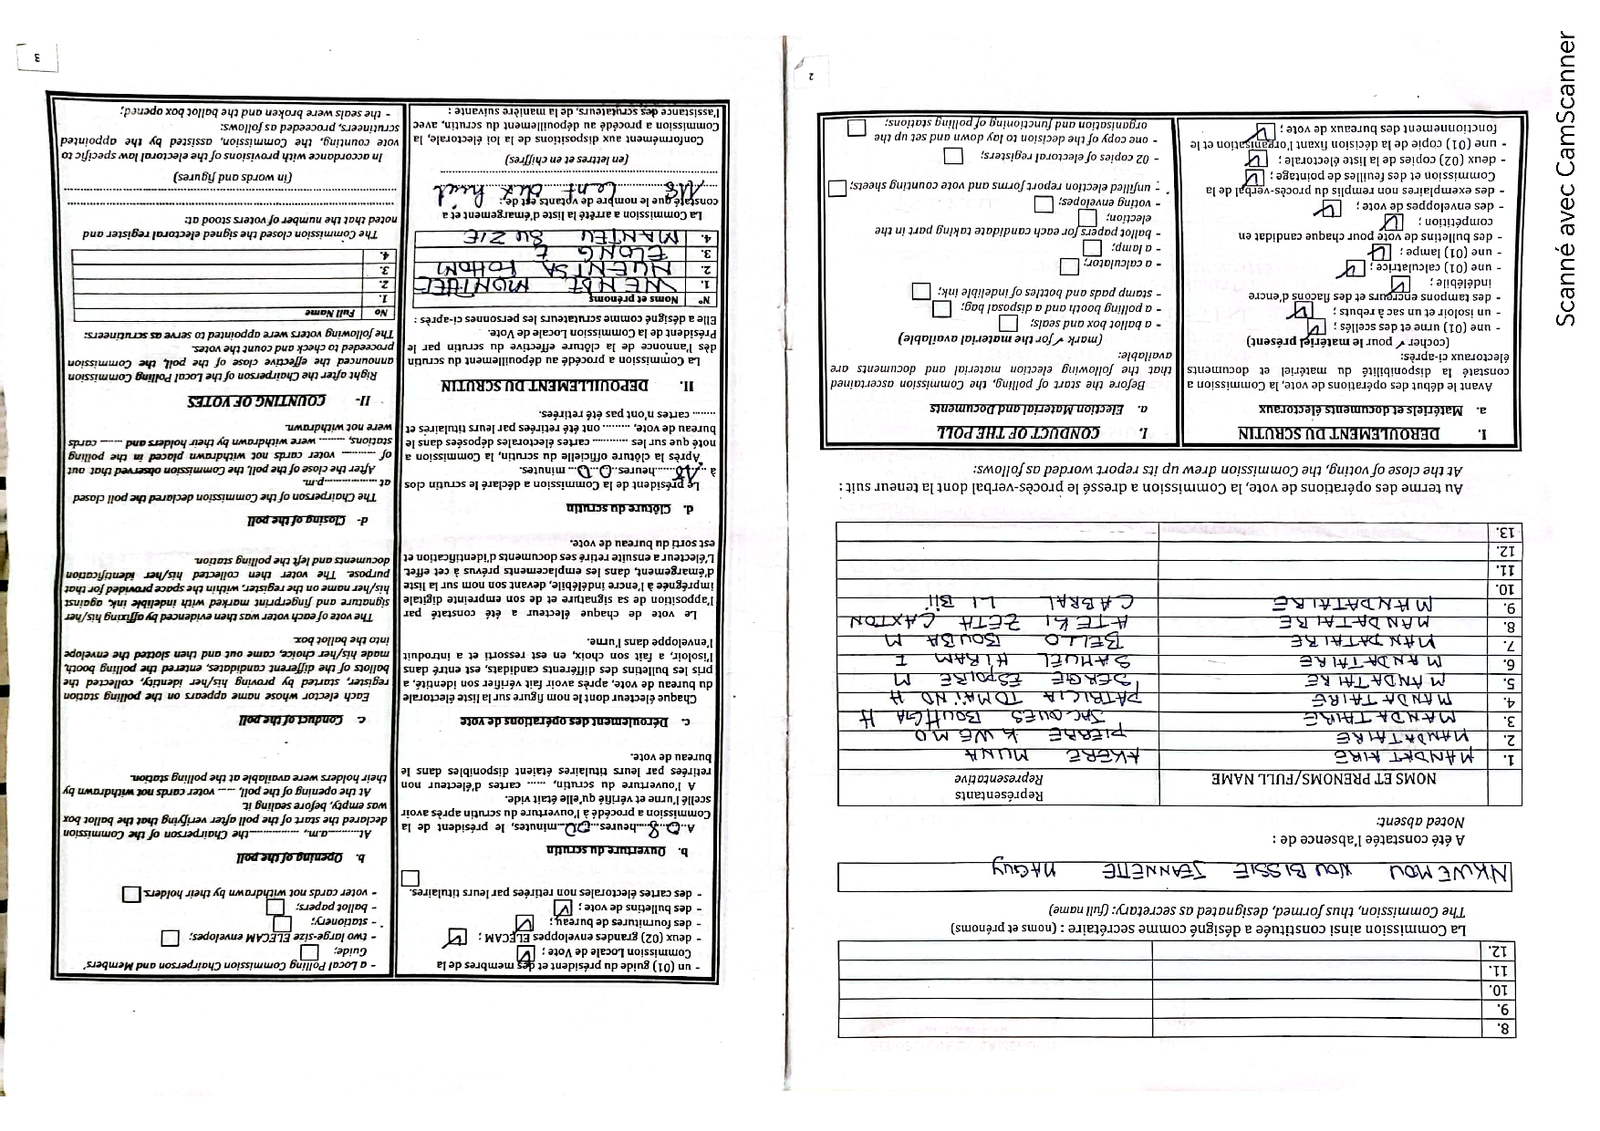 8.
9.
10.
11.
12.
La Commission ainsi constituée a désigné comme secrétaire : (noms et prénoms)
The Commission, thus formed, designated as secretary: (full name)
NKWEMOU NOUBISSIE JEANNETTE MAGUY
A été constatée l'absence de :
Noted absent:
NOMS ET PRENOMS/FULL NAME
Représentants
Representative
1. MANDATAIRE AKERE MUNA
2. MANDATAIRE PIERRE KWEMO
3. MANDATAIRE JACQUES BOUHGA H
4. MANDATAIRE PATRICIA TOMAÏNO H
5. MANDATAIRE SERGE ESPOIRE M
6. MANDATAIRE SAMUEL HIRAM I
7. MANDATAIRE BELLO BOUBA M
8. MANDATAIRE ATEKI ZETA CAXTON
9. MANDATAIRE CABRAL LI Bii
10.
11.
12.
13.
Au terme des opérations de vote, la Commission a dressé le procès-verbal dont la teneur suit :
At the close of voting, the Commission drew up its report worded as follows:
I. DEROULEMENT DU SCRUTIN
a. Matériels et documents électoraux
Avant le début des opérations de vote, la Commission a
constaté la disponibilité du matériel et documents
électoraux ci-après:
(cocher ✓ pour le matériel présent)
- une (01) urne et des scellés ;
- un isoloir et un sac à rebuts ;
- des tampons encreurs et des flacons d'encre
indélébile ;
- une (01) calculatrice ;
- une (01) lampe ;
- des bulletins de vote pour chaque candidat en
compétition ;
- des enveloppes de vote ;
- des exemplaires non remplis du procès-verbal de la
Commission et des feuilles de pointage ;
- deux (02) copies de la liste électorale ;
- une (01) copie de la décision fixant l'organisation et le
fonctionnement des bureaux de vote ;
I. CONDUCT OF THE POLL
a. Election Material and Documents
Before the start of polling, the Commission ascertained
that the following election material and documents are
available:
(mark ✓ for the material available)
- a ballot box and seals;
- a polling booth and a disposal bag;
- stamp pads and bottles of indelible ink;
- a calculator;
- a lamp;
- ballot papers for each candidate taking part in the
election;
- voting envelopes;
- unfilled election report forms and vote counting sheets;
- 02 copies of electoral registers;
- one copy of the decision to lay down and set up the
organisation and functioning of polling stations;
2
- un (01) guide du président et des membres de la
Commission Locale de Vote ;
- deux (02) grandes enveloppes ELECAM ;
- des fournitures de bureau ;
- des bulletins de vote ;
- des cartes électorales non retirées par leurs titulaires.
b. Ouverture du scrutin
A 08 heures 00 minutes, le président de la
Commission a procédé à l'ouverture du scrutin après avoir
scellé l'urne et vérifié qu'elle était vide.
A l'ouverture du scrutin, ...... cartes d'électeur non
retirées par leurs titulaires étaient disponibles dans le
bureau de vote.
c. Déroulement des opérations de vote
Chaque électeur dont le nom figure sur la liste électorale
du bureau de vote, après avoir fait vérifier son identité, a
pris les bulletins des différents candidats, est entré dans
l'isoloir, a fait son choix, en est ressorti et a introduit
l'enveloppe dans l'urne.
Le vote de chaque électeur a été constaté par
l'apposition de sa signature et de son empreinte digitale
imprégnée à l'encre indélébile, devant son nom sur la liste
d'émargement, dans les emplacements prévus à cet effet.
L'électeur a ensuite retiré ses documents d'identification et
est sorti du bureau de vote.
d. Clôture du scrutin
Le président de la Commission a déclaré le scrutin clos
à 18 heures 00 minutes.
Après la clôture officielle du scrutin, la Commission a
noté que sur les .......... cartes électorales déposées dans le
bureau de vote, ......... ont été retirées par leurs titulaires et
........ cartes n'ont pas été retirées.
II. DEPOUILLEMENT DU SCRUTIN
La Commission a procédé au dépouillement du scrutin
dès l'annonce de la clôture effective du scrutin par le
Président de la Commission Locale de Vote.
Elle a désigné comme scrutateurs les personnes ci-après :
N° Noms et prénoms
1. WEMBE MONTHE
2. NUENTSA FOHOM
3. ELONG E
4. MANTEU SUZIE
La Commission a arrêté la liste d'émargement et a
constaté que le nombre de votants est de :
118 Cent dix huit
(en lettres et en chiffres)
Conformément aux dispositions de la loi électorale, la
Commission a procédé au dépouillement du scrutin, avec
l'assistance des scrutateurs, de la manière suivante :
- a Local Polling Commission Chairperson and Members'
Guide;
- two large-size ELECAM envelopes;
- stationery;
- ballot papers;
- voter cards not withdrawn by their holders.
b. Opening of the poll
At..........a.m., ..............the Chairperson of the Commission
declared the start of the poll after verifying that the ballot box
was empty, before sealing it.
At the opening of the poll, ..... voter cards not withdrawn by
their holders were available at the polling station.
c. Conduct of the poll
Each elector whose name appears on the polling station
register, started by proving his/her identity, collected the
ballots of the different candidates, entered the polling booth,
made his/her choice, came out and then slotted the envelope
into the ballot box.
The vote of each voter was then evidenced by affixing his/her
signature and fingerprint marked with indelible ink, against
his/her name on the register, within the space provided for that
purpose. The voter then collected his/her identification
documents and left the polling station.
d- Closing of the poll
The Chairperson of the Commission declared the poll closed
at ..................p.m.
After the close of the poll, the Commission observed that out
of .......... voter cards not withdrawn placed in the polling
stations, ........ were withdrawn by their holders and ...... cards
were not withdrawn.
II- COUNTING OF VOTES
Right after the Chairperson of the Local Polling Commission
announced the effective close of the poll, the Commission
proceeded to check and count the votes.
The following voters were appointed to serve as scrutineers:
No Full Name
1.
2.
3.
4.
The Commission closed the signed electoral register and
noted that the number of voters stood at:
(in words and figures)
In accordance with provisions of the electoral law specific to
vote counting, the Commission, assisted by the appointed
scrutineers, proceeded as follows:
- the seals were broken and the ballot box opened;
3
Scanné avec CamScanner